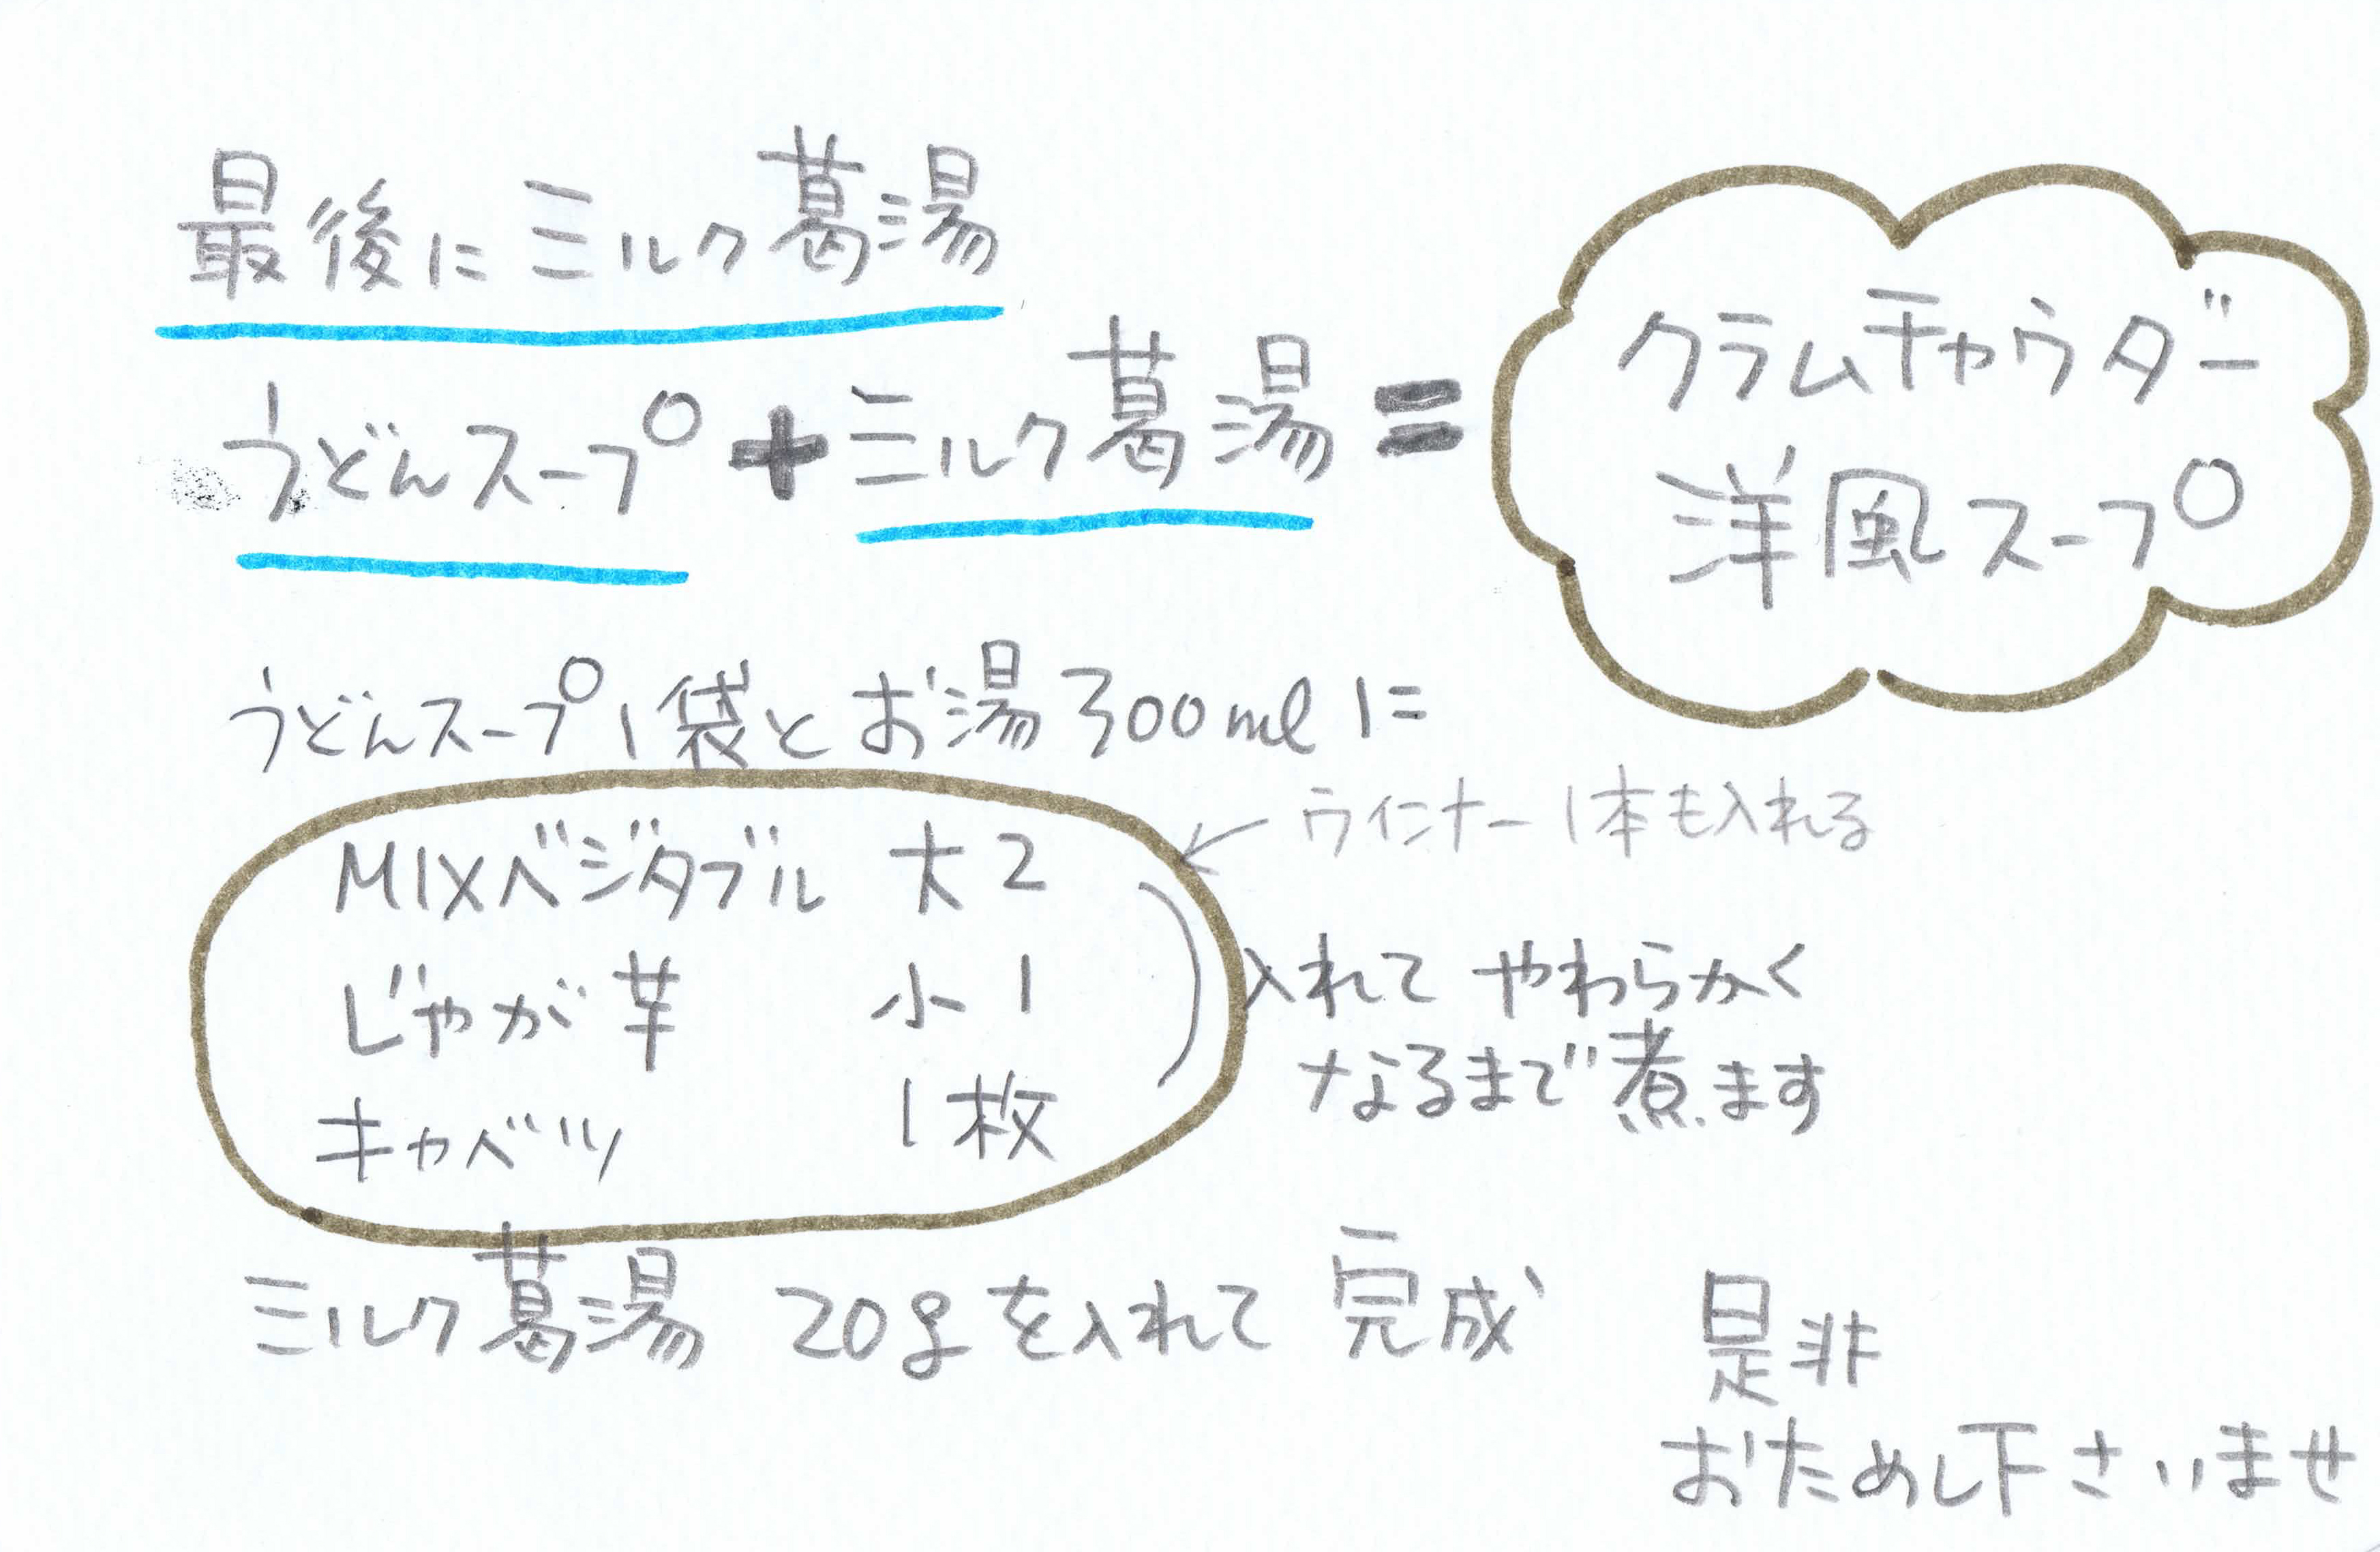 最後にミルク葛湯
うどんスープ+ミルク葛湯=
クラムチャウダー
洋風スープ
うどんスープ1袋とお湯300mlに
ウインナー1本も入れる
MIXベジタブル 大2
じゃが芋 小1
キャベツ 1枚
入れてやわらかく
なるまで煮ます
ミルク葛湯 20gを入れて 完成
是非
おためし下さいませ